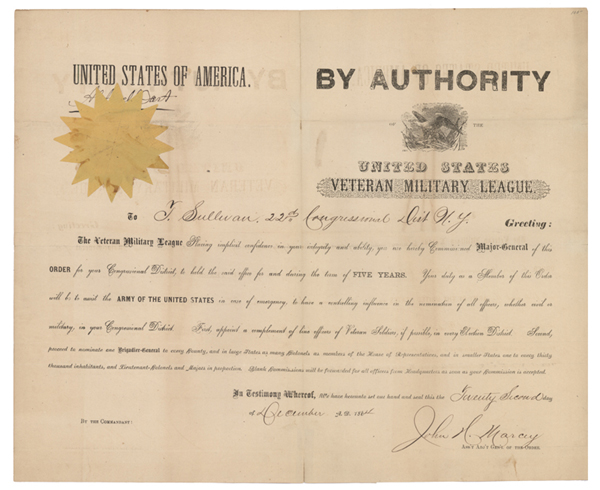 UNITED STATES OF AMERICA.
BY AUTHORITY
OF THE
UNITED STATES
VETERAN MILITARY LEAGUE.
To T. Sullivan, 22nd Congressional Dist N. Y. Greeting:
The Veteran Military League Having implicit confidence in your integrity and ability, you are hereby Commissioned Major-General of this
ORDER for your Congressional District, to hold the said office for and during the term of FIVE YEARS. Your duty as a Member of this Order
will be to assist the ARMY OF THE UNITED STATES in case of emergency, to have a controlling influence in the nomination of all officers, whether civil or
military, in your Congressional District. First, appoint a complement of line officers of Veteran Soldiers, if possible, in every Election District. Second,
proceed to nominate one Brigadier-General to every County, and in large States as many Colonels as members of the House of Representatives, and in smaller States one to every thirty
thousand inhabitants, and Lieutenant-Colonels and Majors in proportion. Blank Commissions will be forwarded for all officers from Headquarters as soon as your Commission is accepted.
In Testimony Whereof, We have hereunto set our hand and seal this the Twenty Second day
of December A.D. 1884
BY THE COMMANDANT:
John H. Marcy
Ass't Adj't Gen'l of the Order.